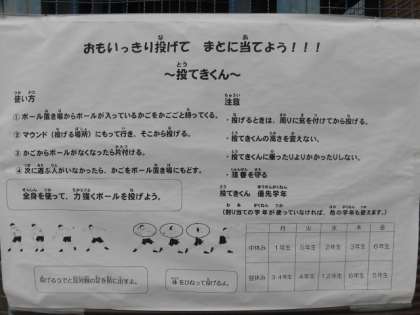 おもいっきり投げて まとに当てよう！！！
～投てきくん～
使い方
① ボール置き場からボールが入っているかごをかごごと持ってくる。
② マウンド（投げる場所）にもって行き、そこから投げる。
③ かごからボールがなくなったら片付ける。
④ 次に遊ぶ人がいなかったら、かごをボール置き場にもどす。
全身を使って、力強くボールを投げよう。
注意
・投げるときは、周りに気を付けてから投げる。
・投てきくんの高さを変えない。
・投てきくんに乗ったりよりかかったりしない。
・順番を守る
投てきくん 優先学年
（割り当ての学年が使っていなければ、他の学年も使えます。）
月 火 水 木 金
中休み 1年生 5年生 2年生 3年生 6年生
昼休み 3・4年生 4年生 1・2年生 6年生 5年生
投げるうでと反対側の足を前に出すよ。
体をひねって投げるよ。